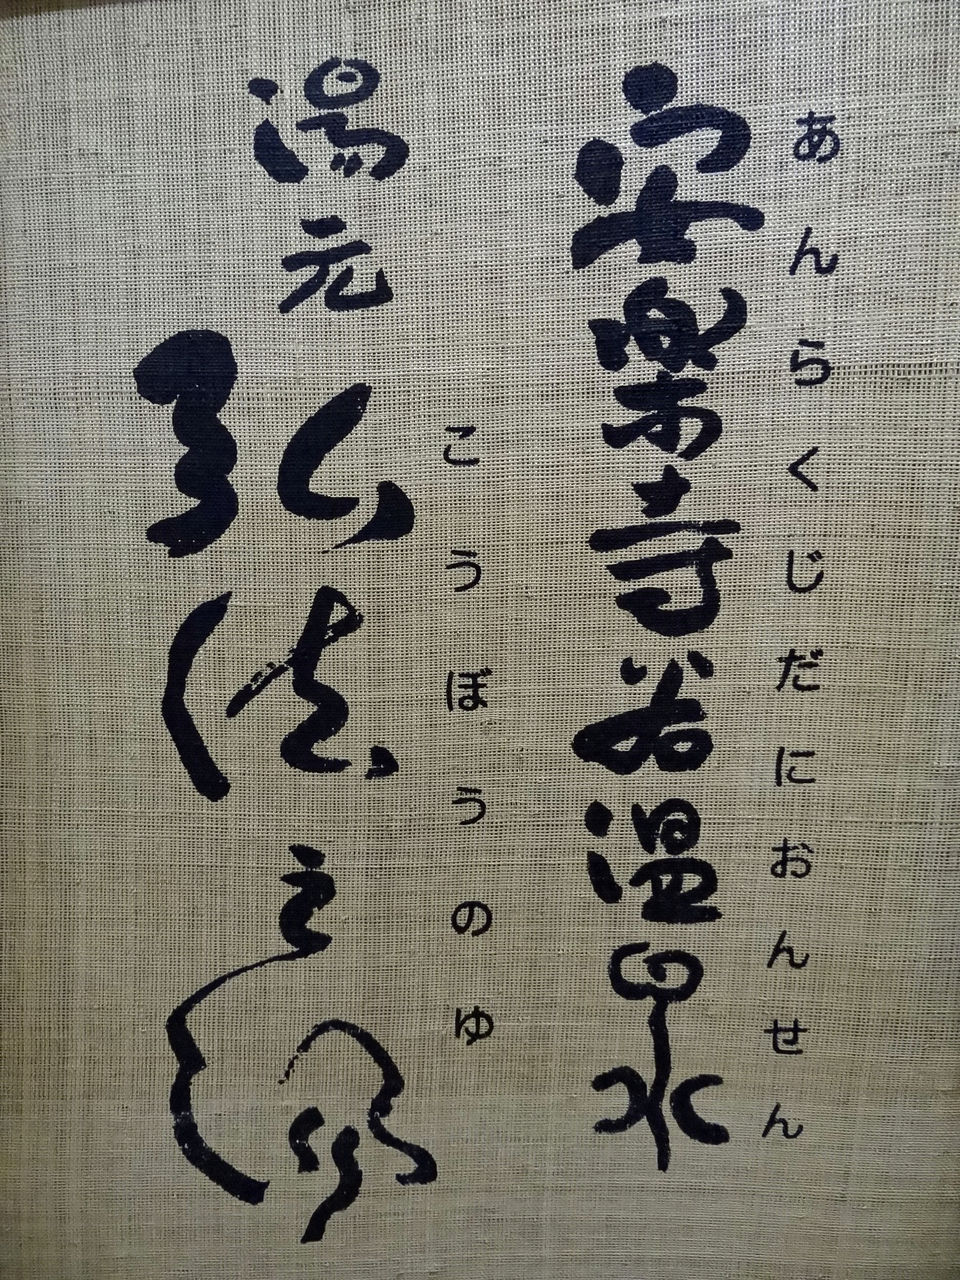 あんらくじだにおんせん
安楽寺谷温泉
こうぼうのゆ
湯元
弘法之湯